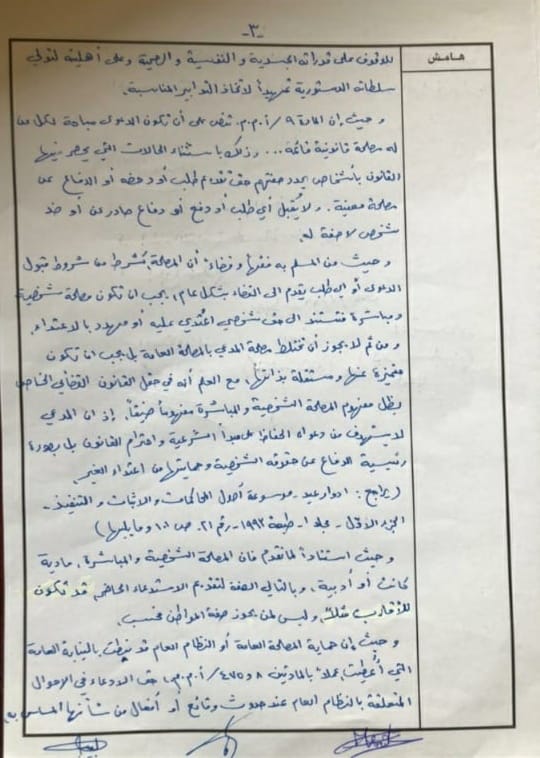 -٣-
هامش
للوقوف على قدراته الجسدية والنفسية والصحية وعلى أهليته لتولي
سلطاته الدستورية تمهيداً لاتخاذ التدابير المناسبة.
و حيث إن المادة ٩/أ.م.م. تنص على أن تكون الدعوى مباحة لكل من
له مصلحة قانونية قائمة... وذلك باستثناء الحالات التي يحصر فيها
القانون بأشخاص يحدد صفتهم حق تقديم طلب أو دحضه أو الدفاع عن
مصلحة معينة. ولا يُقبل أي طلب أو دفع أو دفاع صادر عن أو ضد
شخص لا صفة له.
و حيث من المسلم به فقهاً وقضاءً أن المصلحة، كشرط من شروط قبول
الدعوى أو أي طلب يقدم الى القضاء بشكل عام، يجب ان تكون مصلحة شخصية
ومباشرة فتستند الى حق شخصي اعتُدي عليه أو مهدد بالاعتداء.
ومن ثم لا يجوز أن تختلط مصلحة المدعي بالمصلحة العامة بل يجب ان تكون
متميزة عنها ومستقلة بذاتها، مع العلم أنه في حقل القانون القضائي الخاص
يظل مفهوم المصلحة الشخصية والمباشرة مفهوماً ضيقاً. إذ ان المدعي
لا يستهدف من دعواه الحفاظ على مبدأ الشرعية واحترام القانون بل بصورة
رئيسية الدفاع عن حقوقه الشخصية وحمايتها من اعتداء الغير.
(يراجع: ادوار عيد - موسوعة أصول المحاكمات والاثبات والتنفيذ -
الجزء الأول - مجلد ١ - طبعة ١٩٩٢ - رقم ٢١. ص ١٠١ وما يليها)
و حيث استناداً لما تقدم فان المصلحة الشخصية والمباشرة، مادية
كانت أو أدبية، وبالتالي الصفة لتقديم الاستدعاء الحاضر قد تكون
للأقارب مثلاً، وليس لمن يحوز صفة المواطن فحسب.
و حيث إن حماية المصلحة العامة أو النظام العام قد نيطت بالنيابة العامة
التي أُعطيت، عملاً بالمادتين ٨ و ٤٧٥/أ.م.م. حق الادعاء في الاحوال
المتعلقة بالنظام العام عند حدوث وقائع أو أفعال من شأنها المساس به.